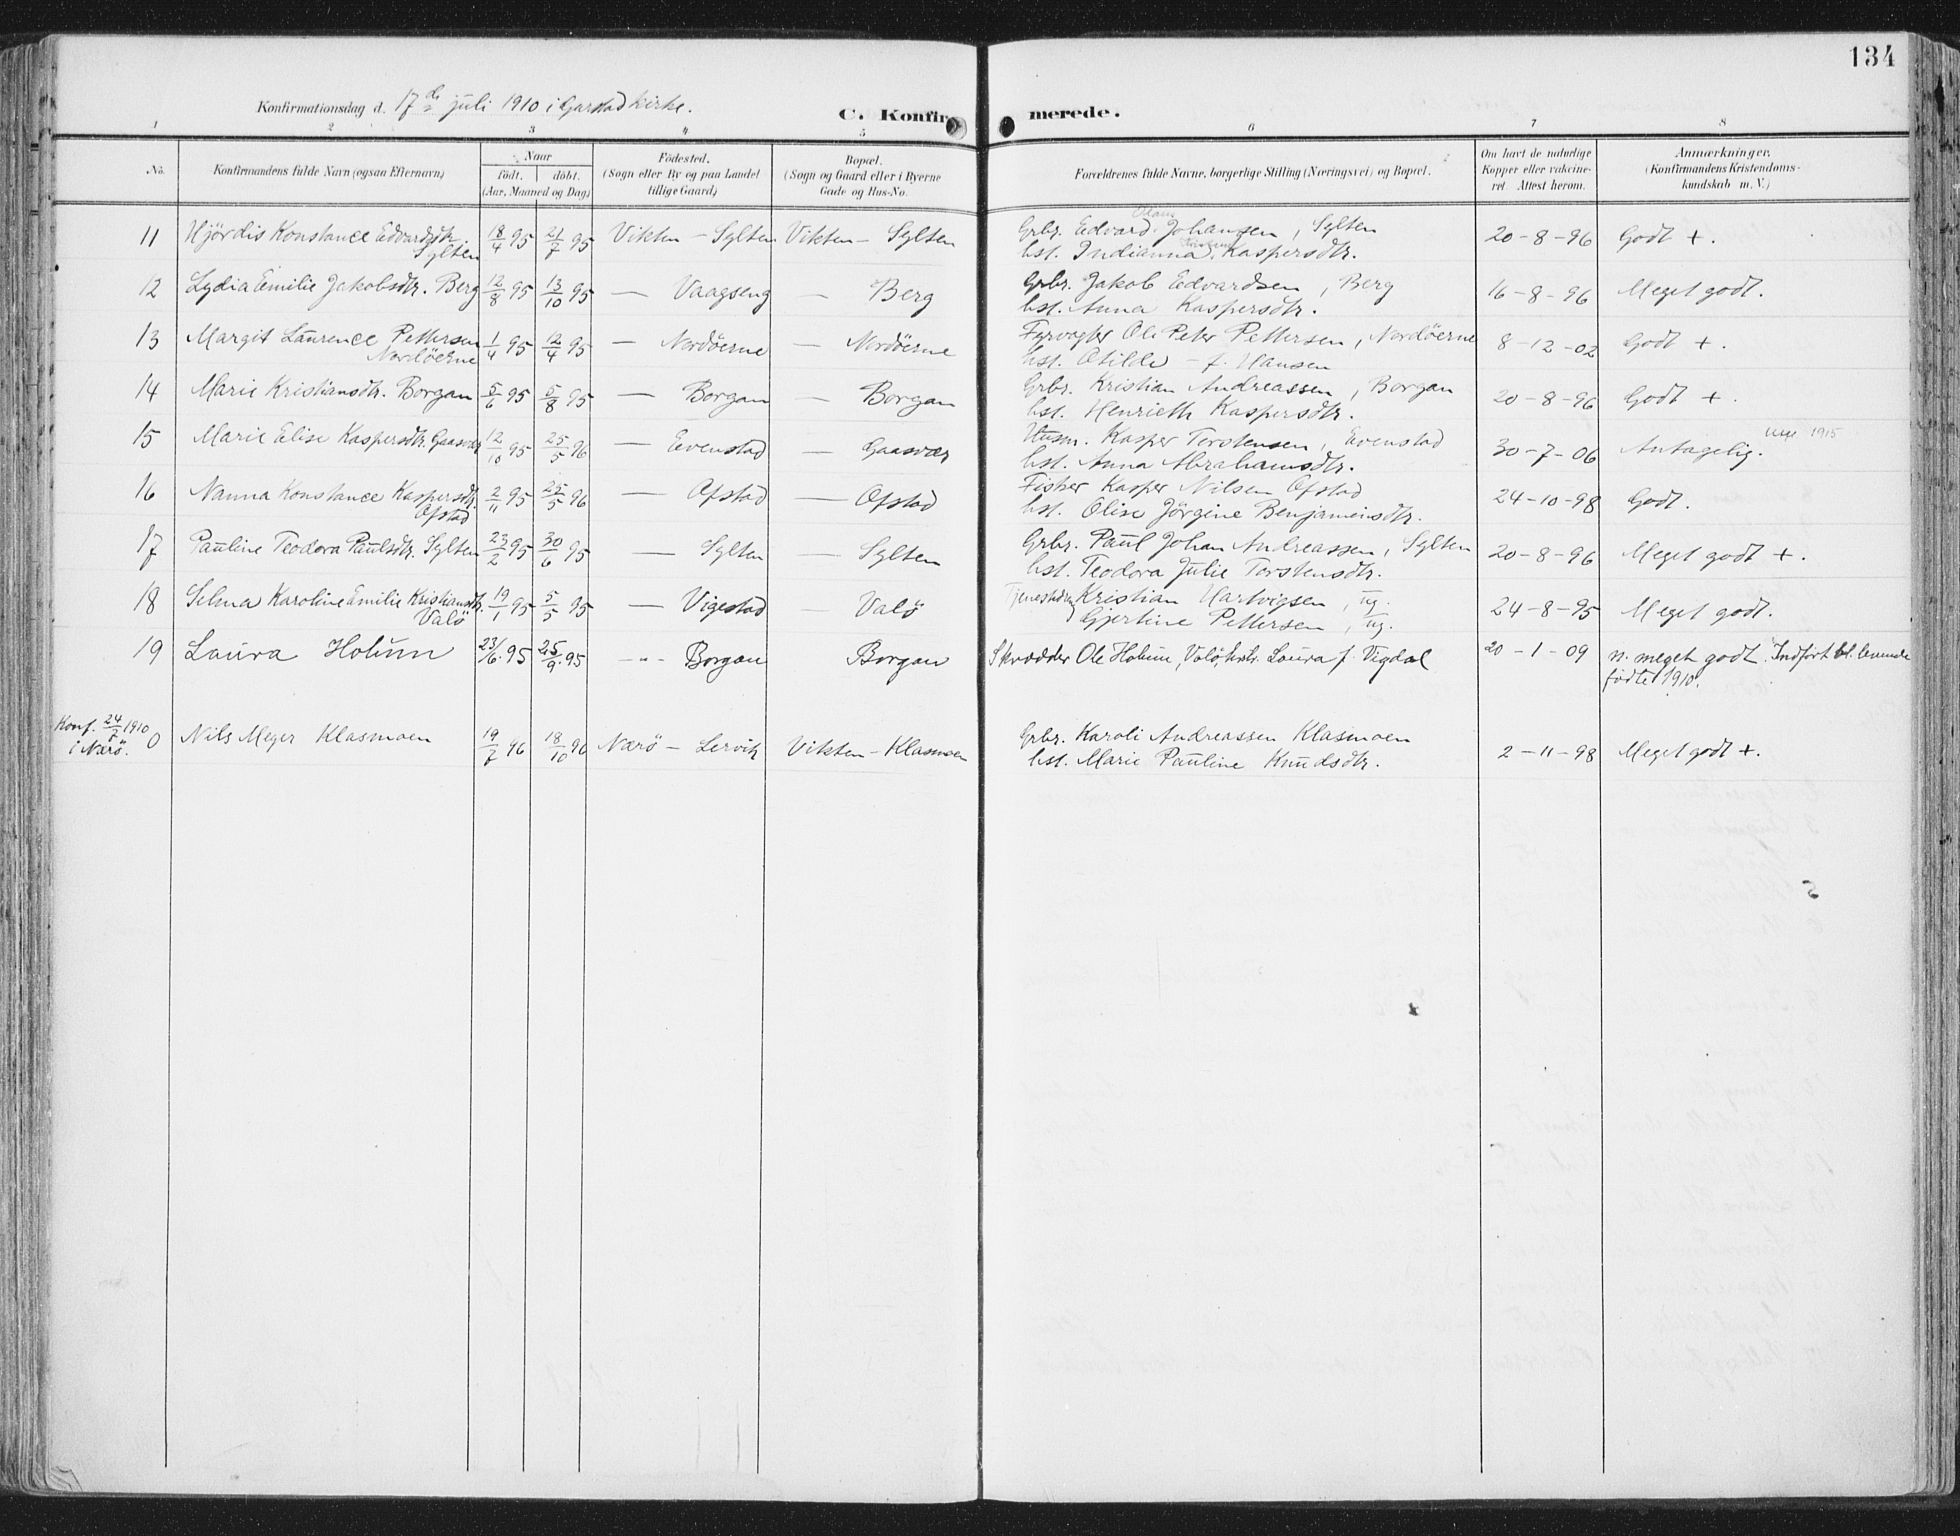 134
Konfirmationsdag d. 17de juli 1910 i Garstad kirke.
C. Konfirmerede.
1 2 3 4 5 6 7 8
No. Konfirmandens fulde Navn (ogsaa Efternavn) Naar født. døbt. (Aar, Maaned og Dag) Fødested. (Sogn eller By og paa Landet tillige Gaard) Bopæl. (Sogn og Gaard eller i Byerne Gade og Hus-No. Forældrenes fulde Navne, borgerlige Stilling (Næringsvei) og Bopæl. Om havt de naturlige Kopper eller vakcineret. Attest herom. Anmærkninger. (Konfirmandens Kristendomskundskab m. V.)
11 Hjördis Konstance Edvardsdtr. Sylten 18/4 95 21/7 95 Vikten - Sylten Vikten - Sylten Grbr. Edvard Olaus Johansen, Sylten 20-8-96 Godt +.
hst. Indianna Kaspersdtr.
12 Lydia Emilie Jakobsdtr. Berg 12/8 95 13/10 95 — Vaagseng — Berg Grbr. Jakob Edvardsen, Berg 16-8-96 Meget godt.
hst. Anna Kaspersdtr.
13 Margit Laurence Pettersen Nordöerne 1/4 95 12/4 95 — Nordöerne — Nordöerne Fyrvogter Ole Peter Pettersen, Nordöerne 8-12-02 Godt +.
hst. Otilde - f. Hansen
14 Marie Kristiansdtr. Borgan 5/6 95 5/8 95 — Borgan — Borgan Grbr. Kristian Andreassen, Borgan 20-8-96 Godt +.
hst. Henrieth Kaspersdtr.
15 Marie Elise Kaspersdtr. Gaasvær 12/10 95 25/5 96 — Evenstad — Gaasvær Husm. Kasper Torstensen, Evenstad 30-7-06 Antagelig. 1915
hst. Anna Abrahamsdtr.
16 Nanna Konstance Kaspersdtr. Ofstad 2/11 95 25/5 96 — Ofstad — Ofstad Fisker Kasper Nilsen Ofstad 24-10-98 Godt.
hst. Olise Jörgine Benjaminsdtr.
17 Pauline Teodora Paulsdtr. Sylten 23/2 95 30/6 95 — Sylten — Sylten Grbr. Paul Johan Andreassen, Sylten 20-8-96 Meget godt +.
hst. Teodora Julie Torstensdtr.
18 Selma Karoline Emilie Kristiansdtr. Valö 19/1 95 5/5 95 — Vigestad — Valö Kristian Hartvigsen, ug. 24-8-95 Meget godt.
Gjertine Pettersen, ug.
19 Laura Holum 23/6 95 25/9 95 -"- Borgan Borgan Skrædder Ole Holum, Valö, hstr. Laura f. Vigdal 20-1-09 n. meget godt. Indført bl. levende fødte 1910.
Konf. 24/7 1910 i Nærö. 0 Nils Meyer Klasmoen 19/7 96 18/10 96 Nærö - Lervik Vikten - Klasmoen Grbr. Karoli Andreassen Klasmoen 2-11-98 Meget godt +.
hst. Marie Pauline Knudsdtr.